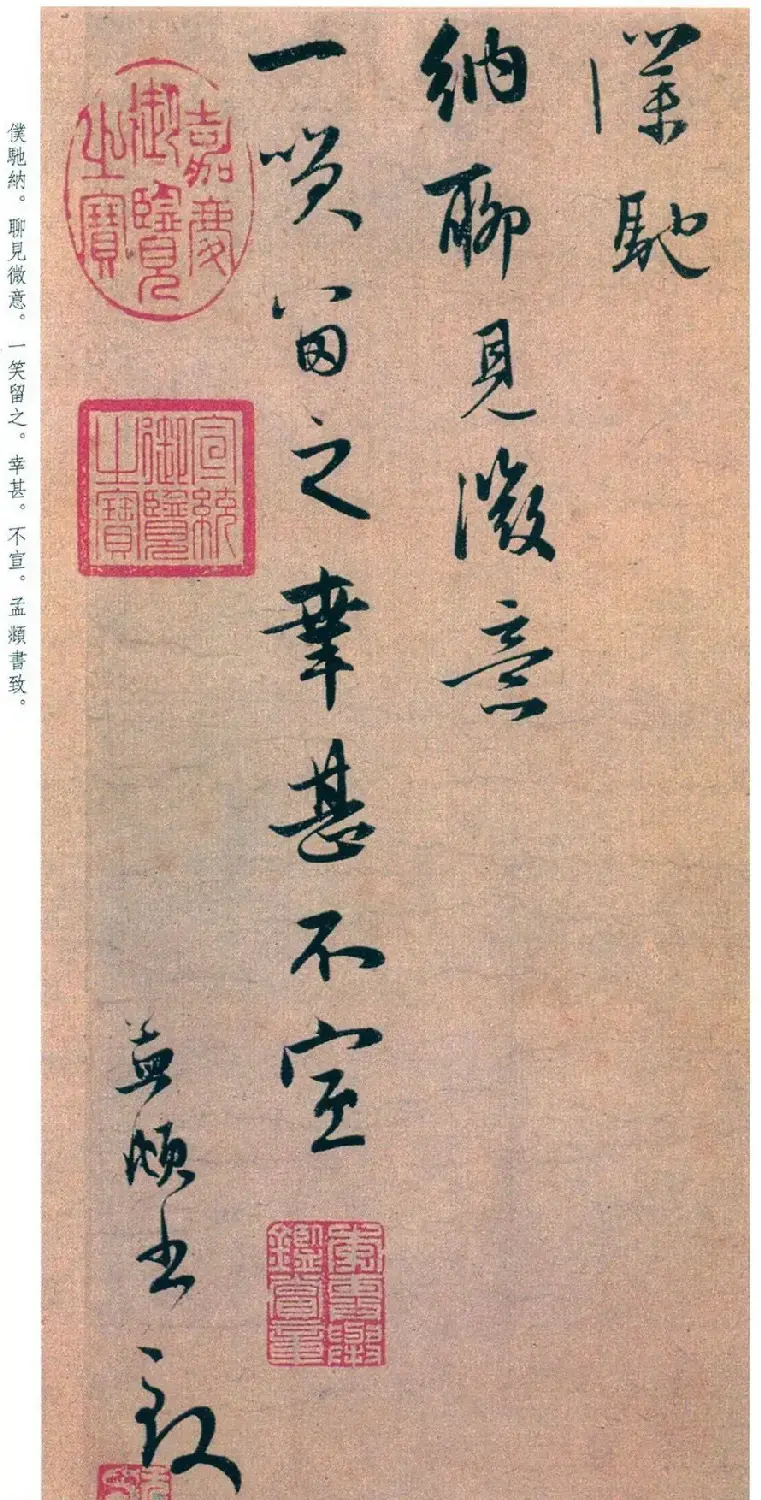 僕馳
納聊見微意
一笑留之幸甚不宣
孟頫書致
嘉慶
御覽
之寶
宣統
御覽
之寶
鑑賞章
僕馳納。聊見微意。一笑留之。幸甚。不宣。孟頫書致。